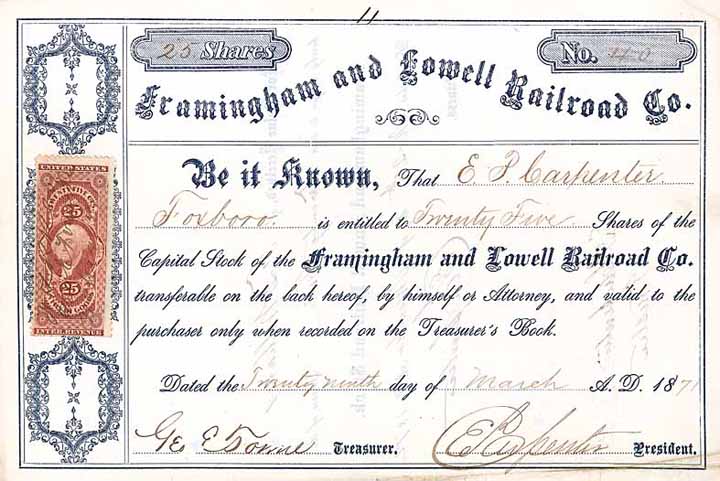 11
25 Shares
No. 40
Framingham and Lowell Railroad Co.
Be it Known, That E. P. Carpenter
Foxboro is entitled to Twenty Five Shares of the
Capital Stock of the Framingham and Lowell Railroad Co.
transferable on the back hereof, by himself or Attorney, and valid to the
purchaser only when recorded on the Treasurer's Book.
Dated the Twenty ninth day of March A. D. 1871
Geo E Towne Treasurer. E P Carpenter President.
UNITED STATES
25 25
INTER. REVENUE